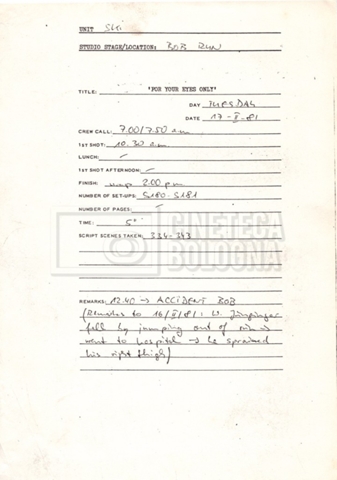 UNIT Ski
STUDIO STAGE/LOCATION: BOB RUN
TITLE: "FOR YOUR EYES ONLY"
DAY TUESDAY
DATE 17-II-81
CREW CALL: 7.00/7.50 a.m
1ST SHOT: 10.30 a.m
LUNCH: -
1ST SHOT AFTERNOON: -
FINISH: wrap 2.00 pm
NUMBER OF SET-UPS: S180-S181
NUMBER OF PAGES: -
TIME: 5"
SCRIPT SCENES TAKEN: 334-343
CINETECA
BOLOGNA
REMARKS: 12.40 → ACCIDENT BOB
(Remarks to 16/II/81: W.
fell by jumping out of →
went to hospital → he sprained
his right thigh)